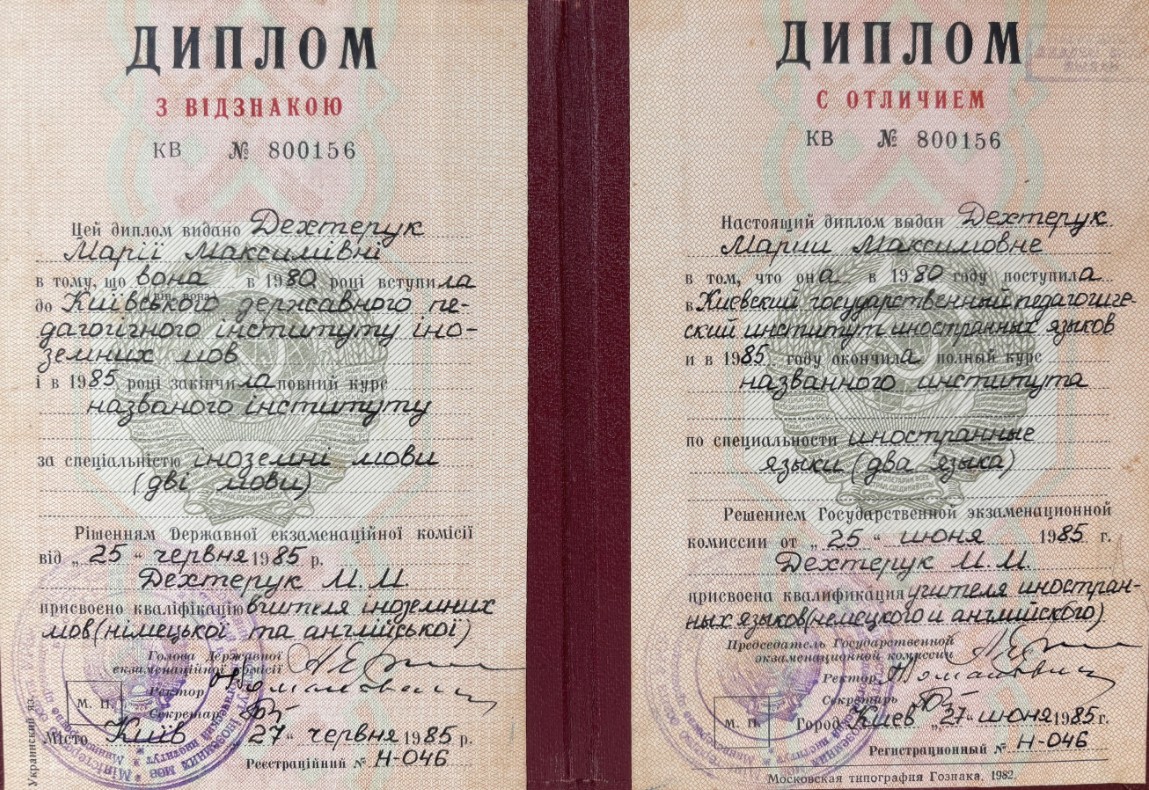 ДИПЛОМ
З ВІДЗНАКОЮ
КВ № 800156
Цей диплом видано Дехтерук
Марії Максимівні
в тому, що вона в 1980 році вступила
до Київського державного пе-
дагогічного інституту іно-
земних мов
і в 1985 році закінчила повний курс
названого інституту
за спеціальністю іноземні мови
(дві мови)
Рішенням Державної екзаменаційної комісії
від „25" червня 1985 р.
Дехтерук М.М.
присвоєно кваліфікацію вчителя іноземних
мов (німецької та англійської)
Голова Державної
екзаменаційної комісії
Ректор
М. П.
Секретар
Місто Київ „27" червня 1985 р.
Реєстраційний № Н-046
Украинский яз.
ДИПЛОМ
С ОТЛИЧИЕМ
КВ № 800156
Настоящий диплом выдан Дехтерук
Марии Максимовне
в том, что она в 1980 году поступила
в Киевский государственный педагогиче-
ский институт иностранных языков
и в 1985 году окончила полный курс
названного института
по специальности иностранные
языки (два языка)
Решением Государственной экзаменационной
комиссии от „25" июня 1985 г.
Дехтерук М.М.
присвоена квалификация учителя иностран-
ных языков (немецкого и английского)
Председатель Государственной
экзаменационной комиссии
Ректор
Секретарь
М. П.
Город Киев „27" июня 1985 г.
Регистрационный № Н-046
Московская типография Гознака, 1982.